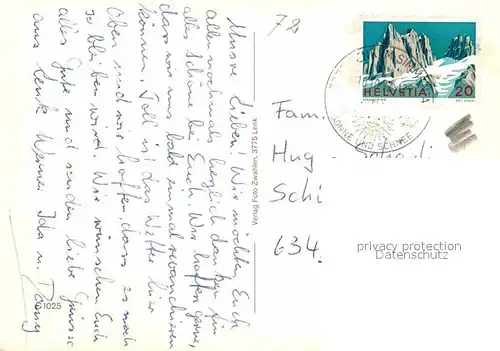 Unsre Lieben! Wir möchten Euch
allen nochmals herzlich danken für
alles Schöne bei Euch. Wir hoffen gerne,
dass wir uns bald einmal revanchieren
können. Toll ist das Wetter hier
oben und wir hoffen, dass es noch
so bleiben wird. Wir wünschen Euch
alles Gute und senden liebe Grüsse
aus Lenk Werner, Ida u.
1025
Verlag Foto Zwahlen, 3775 Lenk
72
HELVETIA 20
SONNE UND SCHNEE
Fam.
Hug
Schi
634.
privacy protection
Datenschutz